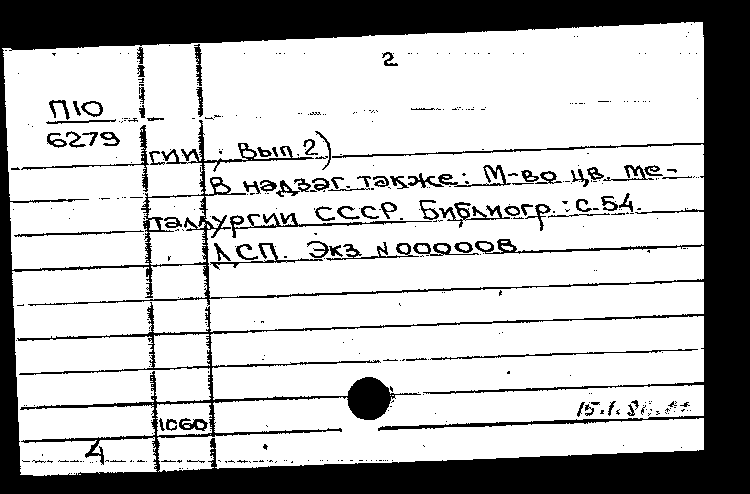 2
П10
6279
гии; Вып. 2)
В надзаг. также: М-во цв. ме-
таллургии СССР. Библиогр.: с. 54.
ДСП. Экз. N 000008
1060
4
15.1.